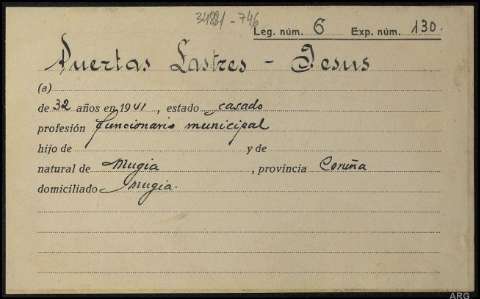 34881-746
Leg. núm. 6 Exp. núm. 130.
Puertas Lastres - Jesus
(a)
de 32 años en 1941, estado casado
profesión funcionario municipal
hijo de y de
natural de Mugia, provincia Coruña
domiciliado Mugia.
ARG